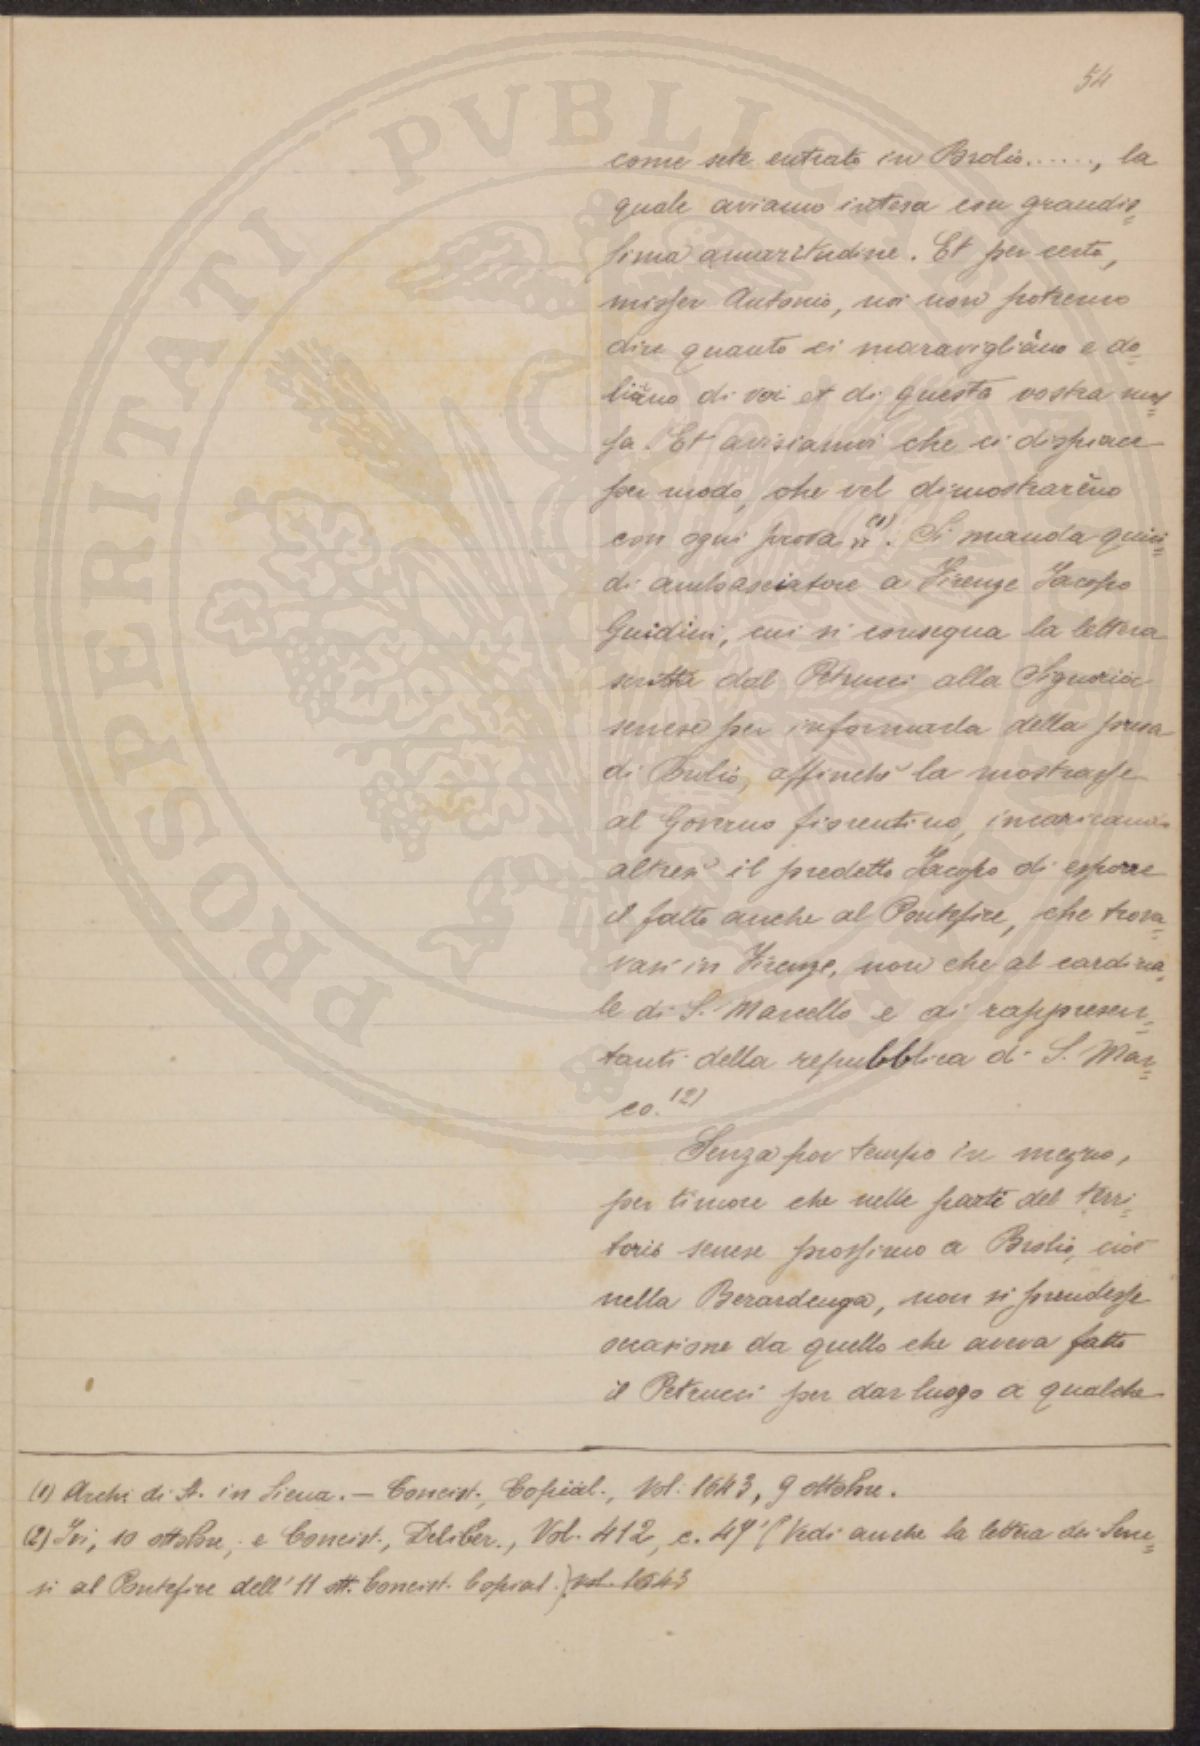 54
come sete entrato in Brolio......, la
quale aviamo intesa con grandis=
sima amaritudine. Et per certo,
misser Antonio, noi non potremo
dire quanto ci maravigliàno e do=
liàno di voi et di questa vostra mos=
sa. Et avisianvi che ci dispiace
per modo, che vel dimostrarèno
con ogni prova » (1). Si manda quin=
di ambasciatore a Firenze Jacopo
Guidini, cui si consegna la lettera
scritta dal Petrucci alla Signoria
senese per informarla della presa
di Brolio, affinchè la mostrasse
al Governo fiorentino, incaricando
altresì il predetto Jacopo di esporre
il fatto anche al Pontefice, che trova=
vasi in Firenze, non che al cardina=
le di S. Marcello e ai rappresen=
tanti della repubblica di S. Mar=
co. (2)
Senza por tempo in mezzo,
per timore che nelle parti del terri=
torio senese prossimo a Brolio, cioè
nella Berardenga, non si prendesse
occasione da quello che aveva fatto
il Petrucci per dar luogo a qualche
(1) Archi di St. in Siena. — Concist., Copial., Vol. 1643, 9 ottobre.
(2) Ivi, 10 ottobre; e Concist., Deliber., Vol. 412, c. 49' (Vedi anche la lettera dei Sene=
si al Pontefice dell' 11 ott. Concist. Copial.) vol. 1643
PROSPERITATI PVBLICAE